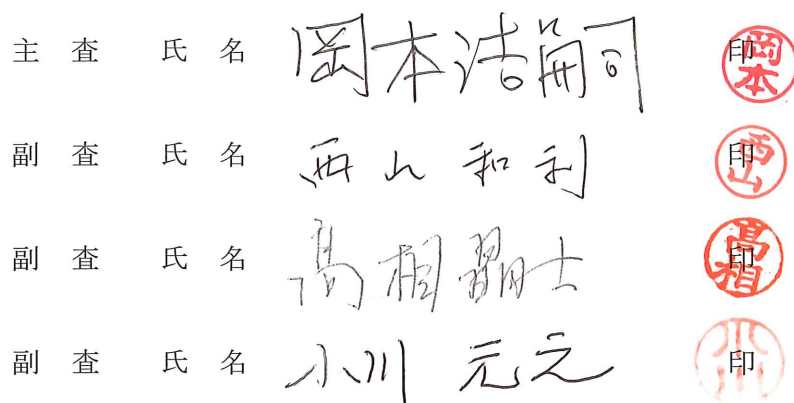 主 査 氏 名 岡本浩嗣 印 岡本
副 査 氏 名 西山和利 印 西山
副 査 氏 名 高相晶士 印 高相
副 査 氏 名 小川元之 印 小川